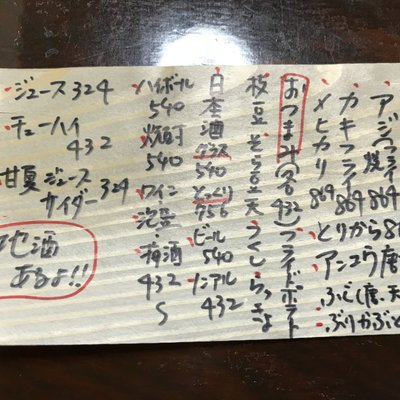 アジ(フライ 焼) 864
カキフライ 864
メヒカリ 864
とりから 86
アンコウ唐
ふぐ(唐、天
ぶりかぶと
おつまみ(各432)フライドポテト
枝豆 そら豆天 らっきょ
日本酒
グラス
540
とっくり
756
ビール
540
ノンアル
432
ハイボール
540
焼酎
540
ワイン
泡盛
梅酒
432
S
ジュース 324
チューハイ
432
甘夏ジュース
サイダー 324
地酒
あるよ!!